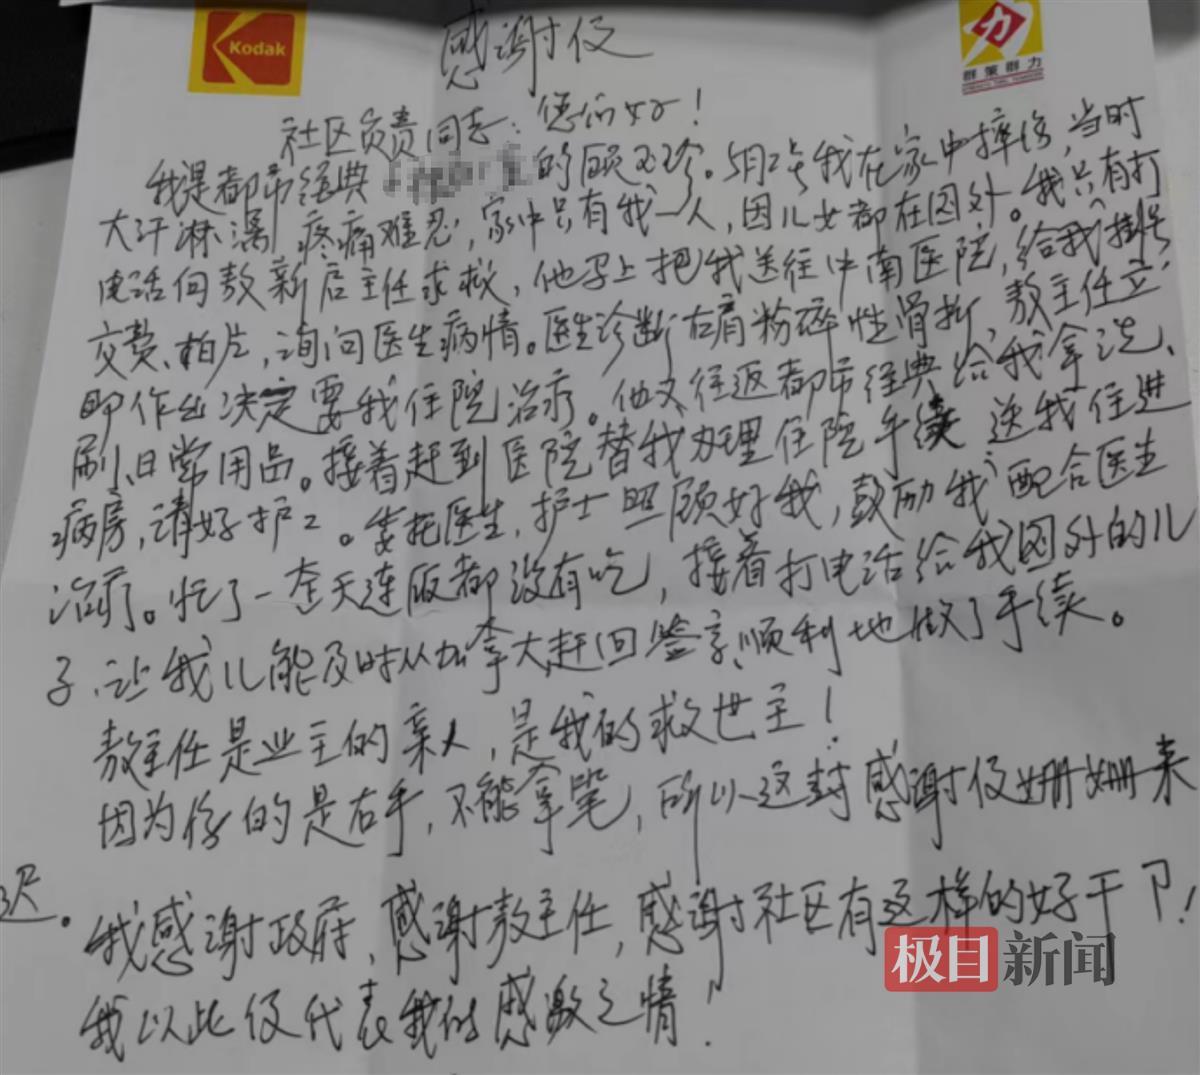 Kodak
群策群力
感谢信
社区负责同志：您们好！
我是都市经典的顾玉珍。5月2号我在家中摔伤，当时
大汗淋漓，疼痛难忍，家中只有我一人，因儿女都在国外。我只有打
电话向敖新启主任求救，他马上把我送往中南医院，给我挂号
交费、拍片，询问医生病情。医生诊断右肩粉碎性骨折，敖主任立
即作出决定要我住院治疗。他又往返都市经典给我拿洗、
刷、日常用品。接着赶到医院替我办理住院手续 送我住进
病房，请好护工。委托医生，护士照顾好我，鼓励我配合医生
治疗。忙了一整天连饭都没有吃，接着打电话给我国外的儿
子、让我儿能及时从加拿大赶回签字、顺利地做了手续。
敖主任是业主的亲人，是我的救世主！
因为伤的是右手，不能拿笔，所以这封感谢信姗姗来
迟。
我感谢政府，感谢敖主任，感谢社区有这样的好干卩！
我以此信代表我的感激之情！
极目新闻